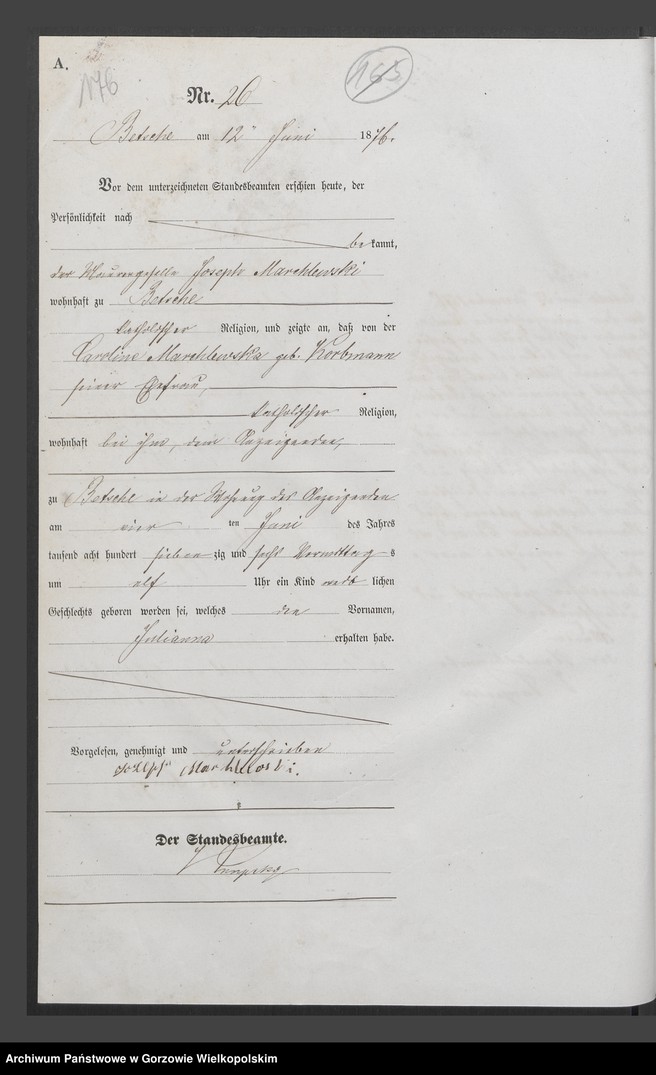 A.
176
163
Nr. 26
Betsche am 12ten Juni 1876.
Vor dem unterzeichneten Standesbeamten erschien heute, der
Persönlichkeit nach
bekannt,
der Maurergeselle Joseph Marchlewski
wohnhaft zu Betsche
katholischer Religion, und zeigte an, daß von der
Caroline Marchlewska geb. Korbmann
seiner Ehefrau,
katholischer Religion,
wohnhaft bei ihm, dem Anzeigenden,
zu Betsche in der Wohnung des Anzeigenden
am vier ten Juni des Jahres
tausend acht hundert sieben zig und sechs Vormittag s
um elf Uhr ein Kind weib lichen
Geschlechts geboren worden sei, welches den Vornamen,
Julianna erhalten habe.
Vorgelesen, genehmigt und unterschrieben
Der Standesbeamte.
Archiwum Państwowe w Gorzowie Wielkopolskim